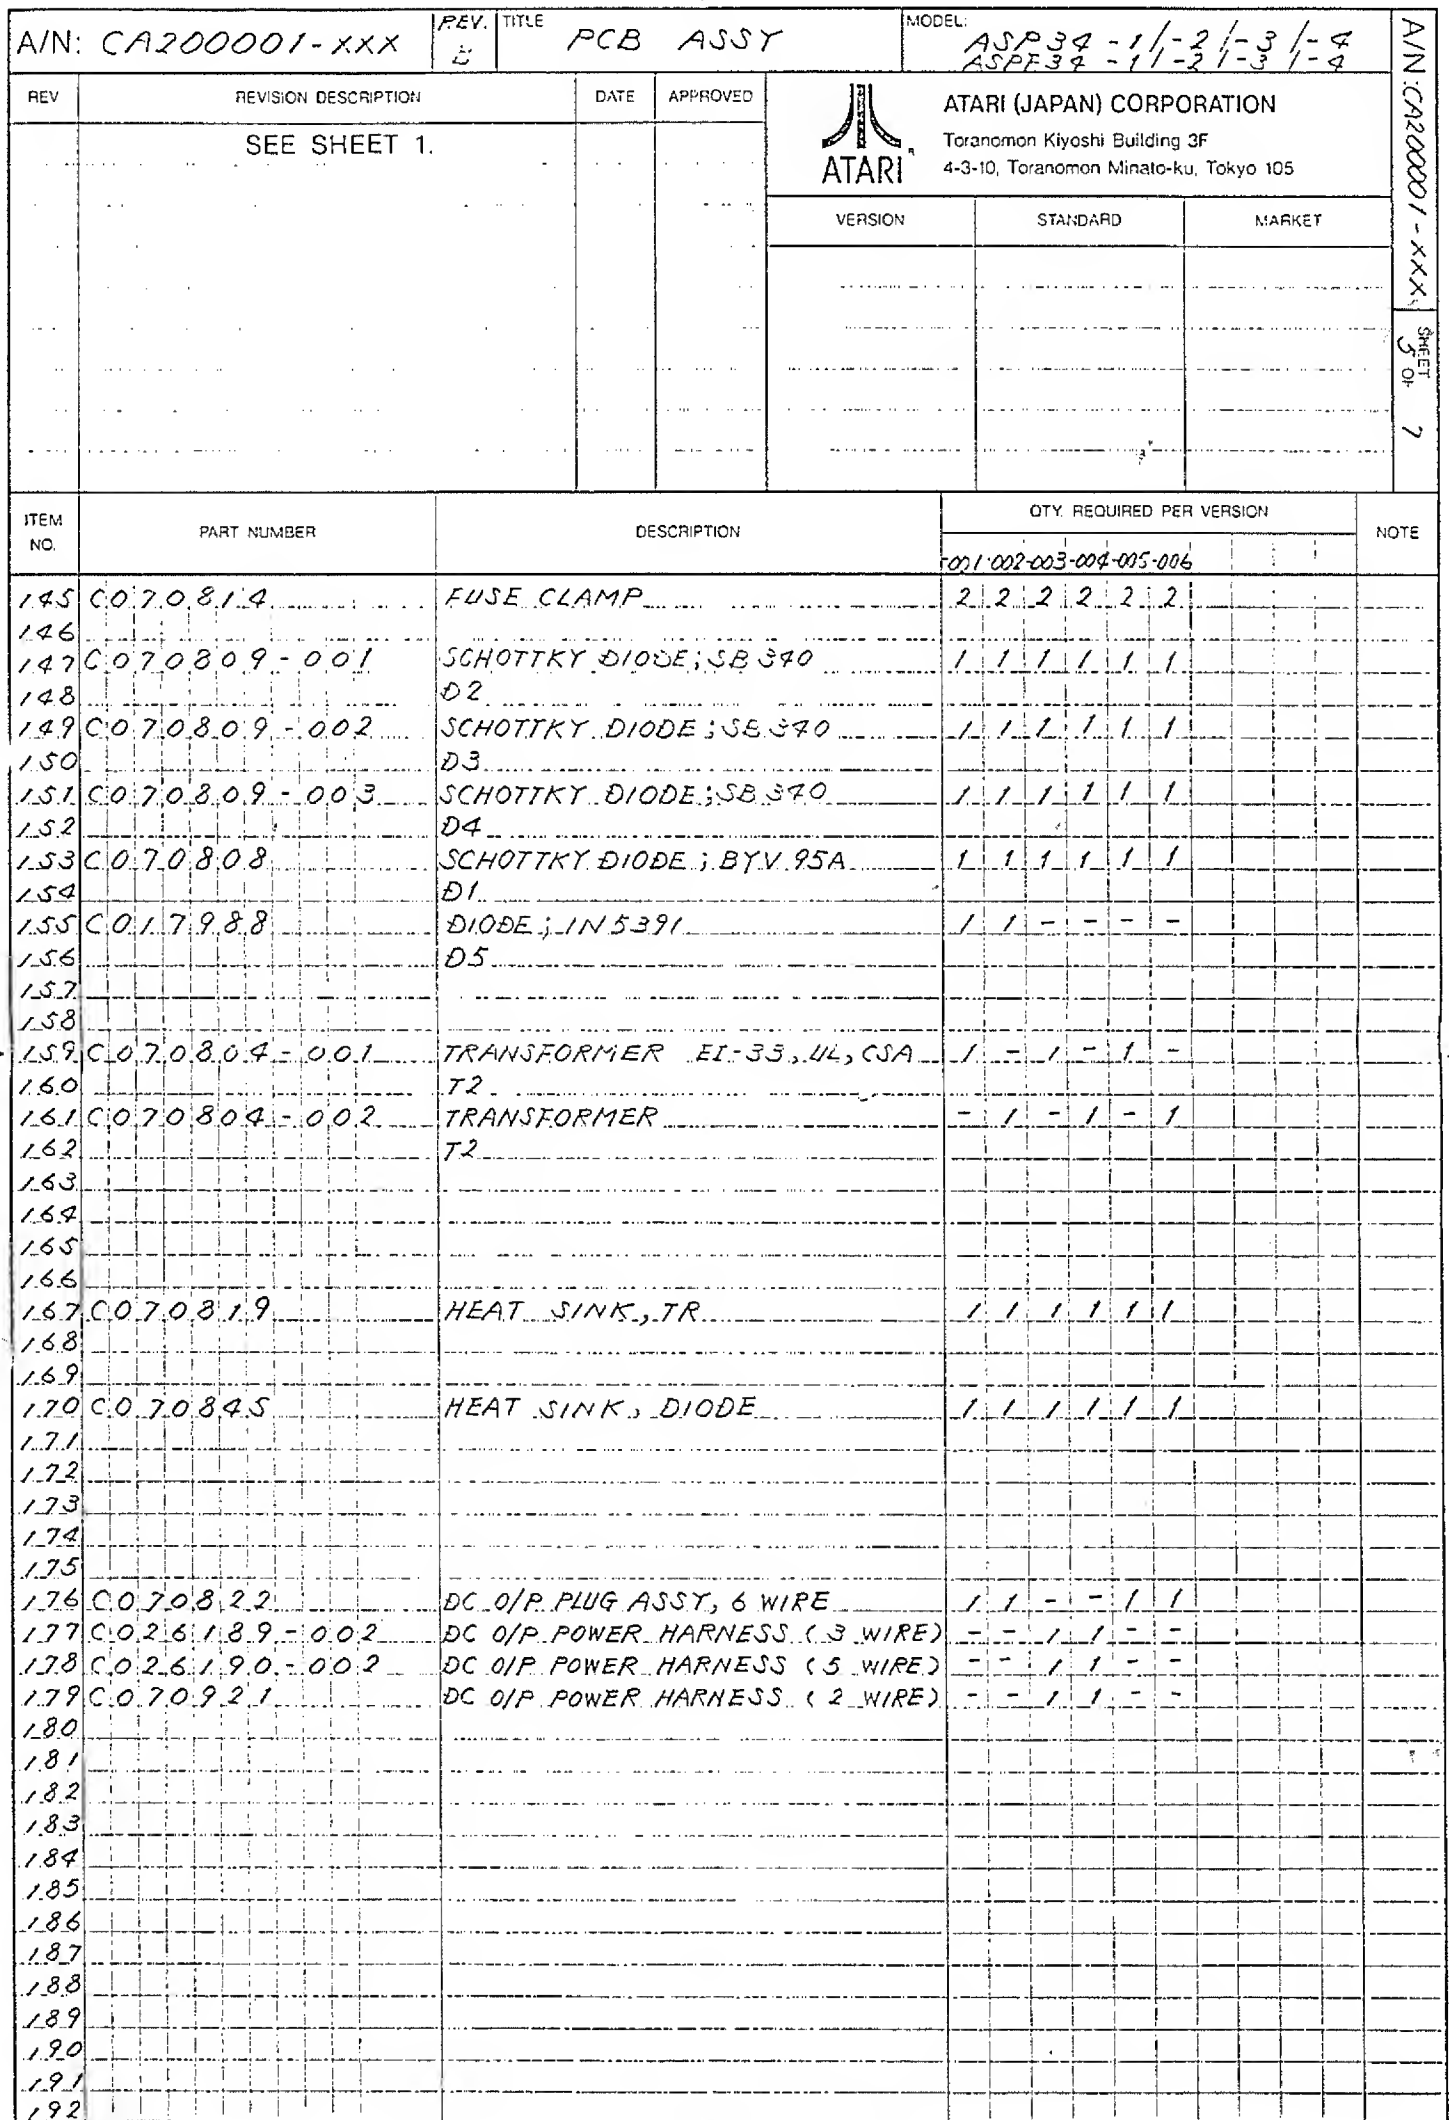 A/N: CA200001-XXX REV. TITLE PCB ASSY MODEL: ASP34 -1/-2/-3/-4
ASPF34 -1/-2/-3/-4
REV REVISION DESCRIPTION DATE APPROVED
SEE SHEET 1.
ATARI
ATARI (JAPAN) CORPORATION
Toranomon Kiyoshi Building 3F
4-3-10, Toranomon Minato-ku, Tokyo 105
VERSION STANDARD MARKET
A/N: CA200001-XXX SHEET 5 OF 7
ITEM NO. PART NUMBER DESCRIPTION QTY. REQUIRED PER VERSION NOTE
-001-002-003-004-005-006
145 C070814 FUSE CLAMP 2 2 2 2 2 2
146
147 C070809-001 SCHOTTKY DIODE; SB340 1 1 1 1 1 1
148 D2
149 C070809-002 SCHOTTKY DIODE; SB340 1 1 1 1 1 1
150 D3
151 C070809-003 SCHOTTKY DIODE; SB340 1 1 1 1 1 1
152 D4
153 C070808 SCHOTTKY DIODE; BYV95A 1 1 1 1 1 1
154 D1
155 C017988 DIODE; IN5391 1 1 - - - -
156 D5
157
158
159 C070804-001 TRANSFORMER EI-33, UL, CSA 1 - 1 - 1 -
160 T2
161 C070804-002 TRANSFORMER - 1 - 1 - 1
162 T2
163
164
165
166
167 C070819 HEAT SINK, TR 1 1 1 1 1 1
168
169
170 C070845 HEAT SINK, DIODE 1 1 1 1 1 1
171
172
173
174
175
176 C070822 DC O/P PLUG ASSY, 6 WIRE 1 1 - - 1 1
177 C026189-002 DC O/P POWER HARNESS (3 WIRE) - - 1 1 - -
178 C026190-002 DC O/P POWER HARNESS (5 WIRE) - - 1 1 - -
179 C070921 DC O/P POWER HARNESS (2 WIRE) - - 1 1 - -
180
181
182
183
184
185
186
187
188
189
190
191
192